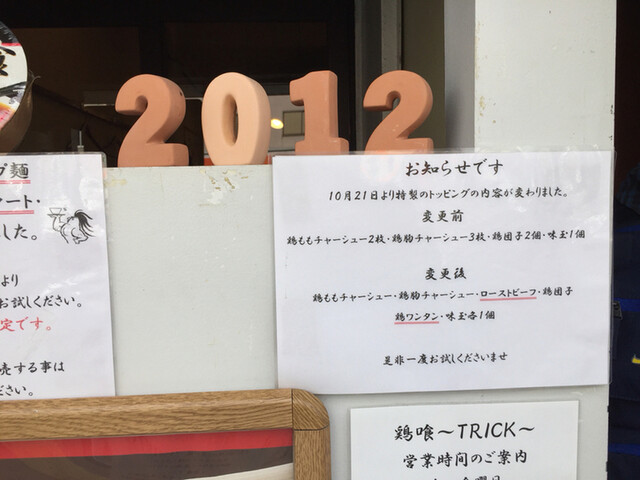 2012
プ麺
ート・
した。
より
お試しください。
定です。
売する事は
ださい。
お知らせです
10月21日より特製のトッピングの内容が変わりました。
変更前
鶏ももチャーシュー2枚・鶏胸チャーシュー3枚・鶏団子2個・味玉1個
変更後
鶏ももチャーシュー・鶏胸チャーシュー・ローストビーフ・鶏団子
鶏ワンタン・味玉各1個
是非一度お試しくださいませ
鶏喰～TRICK～
営業時間のご案内